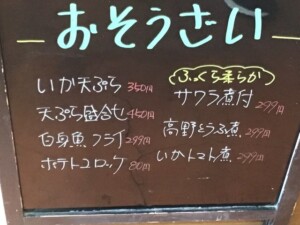 おそうざい
いか天ぷら 350円
天ぷら盛合せ 450円
白身魚フライ 299円
ポテトコロッケ 80円
ふっくら柔らか
サワラ煮付 299円
高野とうふ煮 299円
いかトマト煮 299円